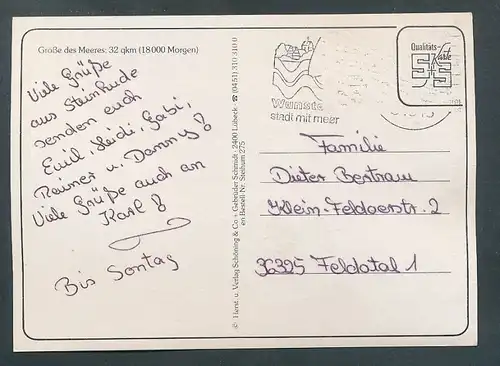 Größe des Meeres: 32 qkm (18000 Morgen)
Viele Grüße
aus Steinhude
senden euch
Emil, Heidi, Gabi,
Reimer u. Dannys!
Viele Grüße auch an
Karl!
Bis Sontag
© Herst. u. Verlag Schöning & Co + Gebrüder Schmidt, 2400 Lübeck,
en Bestell-Nr. Steihum 275
stadt mit meer
Qualitäts-
Familie
Dieter Bertram
Klein-Feldaerstr. 2
36325 Feldatal 1